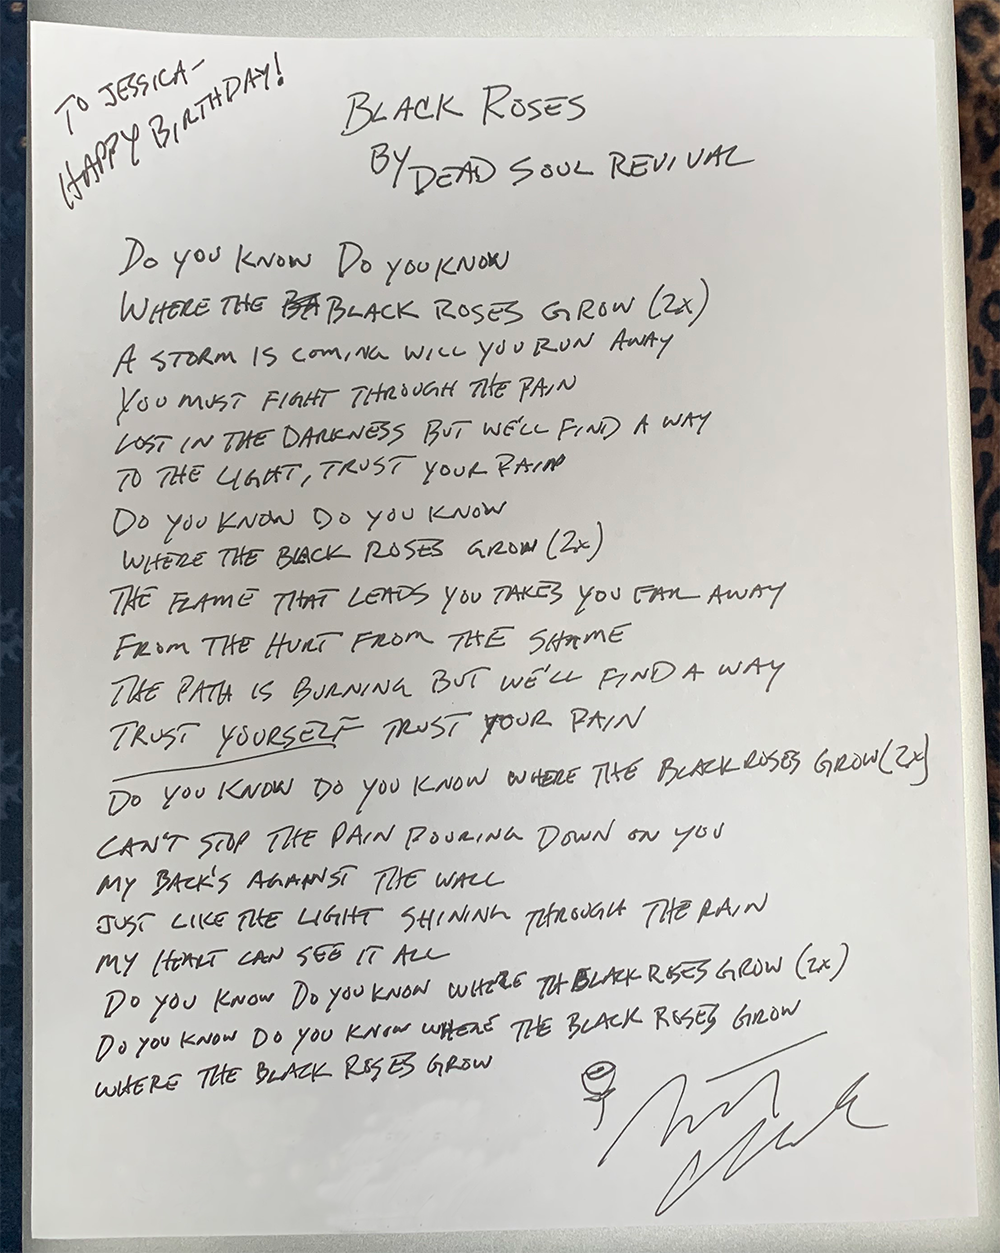 TO JESSICA-
HAPPY BIRTHDAY!
BLACK ROSES
BY DEAD SOUL REVIVAL
DO YOU KNOW DO YOU KNOW
WHERE THE BLACK ROSES GROW (2x)
A STORM IS COMING WILL YOU RUN AWAY
YOU MUST FIGHT THROUGH THE PAIN
LOST IN THE DARKNESS BUT WE'LL FIND A WAY
TO THE LIGHT, TRUST YOUR PAIN
DO YOU KNOW DO YOU KNOW
WHERE THE BLACK ROSES GROW (2x)
THE FLAME THAT LEADS YOU TAKES YOU FAR AWAY
FROM THE HURT FROM THE SHAME
THE PATH IS BURNING BUT WE'LL FIND A WAY
TRUST YOURSELF TRUST YOUR PAIN
DO YOU KNOW DO YOU KNOW WHERE THE BLACK ROSES GROW (2x)
CAN'T STOP THE PAIN POURING DOWN ON YOU
MY BACK'S AGAINST THE WALL
JUST LIKE THE LIGHT SHINING THROUGH THE RAIN
MY HEART CAN SEE IT ALL
DO YOU KNOW DO YOU KNOW WHERE TH BLACK ROSES GROW (2x)
DO YOU KNOW DO YOU KNOW WHERE THE BLACK ROSES GROW
WHERE THE BLACK ROSES GROW